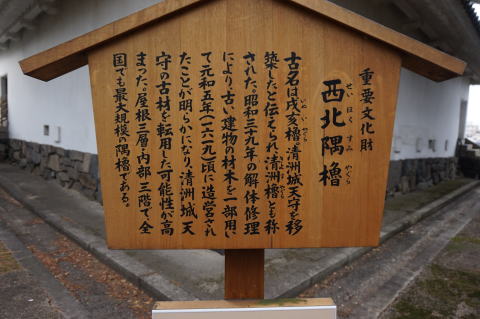 重要文化財
西北隅櫓
せいほくすみ やぐら
古名は戌亥櫓。清洲城天守を移
いぬい やぐら
築したと伝えられ清洲櫓とも称
された。昭和三十九年の解体修理
により、古い建物の材木を一部用い
て元和五年(一六一九)頃に造営され
たことが明らかになり、清洲城天
守の古材を転用した可能性が高
まった。屋根三層、内部三階で、全
国でも最大規模の隅櫓である。